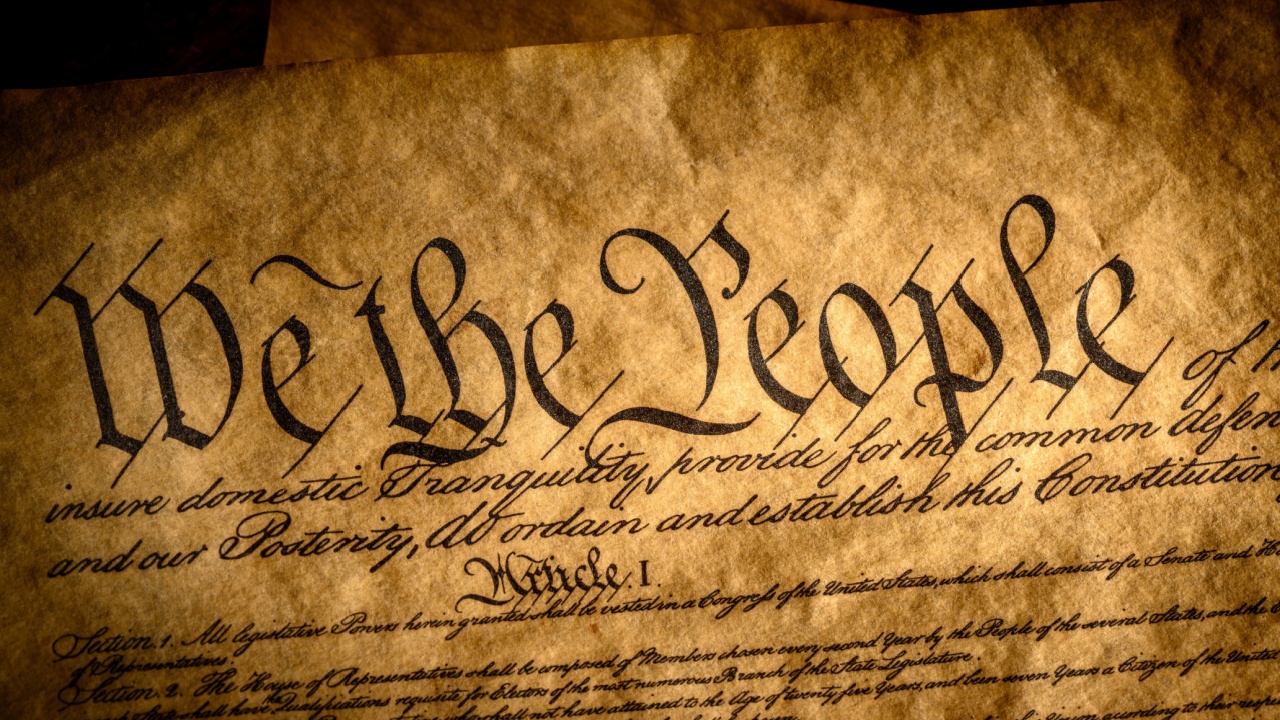 We the People of
insure domestic Tranquility, provide for the common defen
and our Posterity, do ordain and establish this Constitution
Article. I.
Section. 1. All legislative Powers herein granted shall be vested in a Congress of the United States, which shall consist of a Senate and
of Representatives.
Section. 2. The House of Representatives shall be composed of Members chosen every second Year by the People of the several States, and the
State shall have the Qualifications requisite for Electors of the most numerous Branch of the State Legislature.
shall not have attained to the Age of twenty five Years, and been seven Years a Citizen of the United
according to their